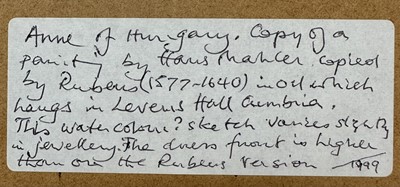 Anne of Hungary. Copy of a
painting by Hans Mahler. copied
by Rubens (1577-1640) in oil which
hangs in Levens Hall Cumbria.
This watercolour? sketch varies slightly
in jewellery. The dress front is higher
than on the Rubens version 1999